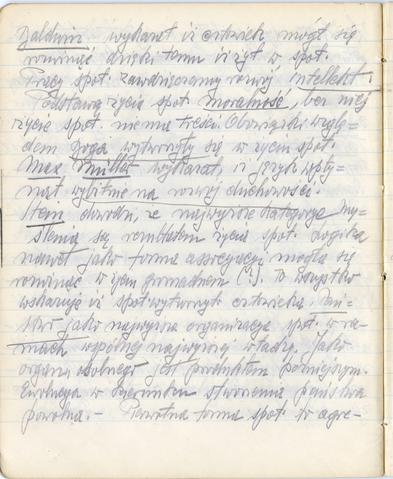 Baldwin wykazał iż człowiek mógł się
rozwinąć dzięki temu iż żył w społ.
Pracy społ. zawdzięczamy rozwój intellekt.
Podstawą życia społ. moralność, bez niej
życie społ. niema treści. Obowiązki wzglę=
dem wytworzyły się w życiu społ.
Max Müller wykazał, iż język wpły=
nął wybitnie na rozwój duchowości.
Stein dowodzi, że najwyższe kategorye my=
ślenia są rezultatem życia społ. Logika
nawet jako forma assocyacyi mogła się
rozwinąć w życiu gromadnem (?!). To wszystko
wskazuje iż społ. wytworzyło człowieka.
jako najwyższa organizacya społ. w ra=
mach wspólnej najwyższej władzy. Jako
organ. osobnego jest produktem późniejszym.
Ewolucya w kierunku stworzenia państwa
powolna. – Pierwotna forma społ. to agre=